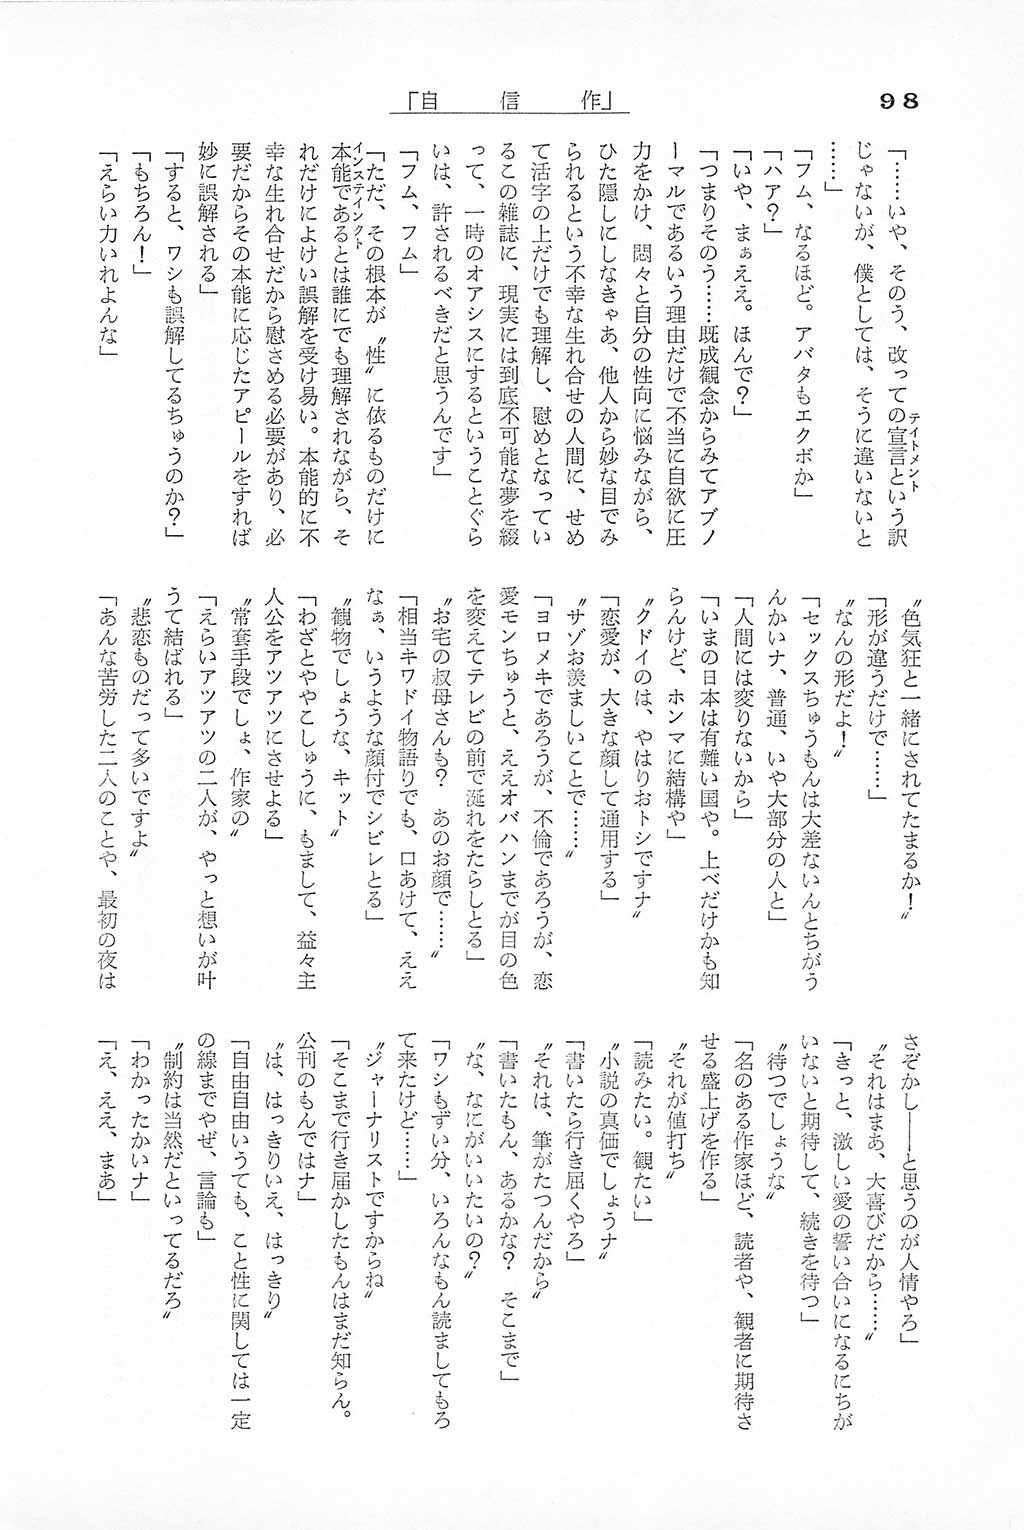 98
「自信作」
「……いや、そのう、改っての宣言という訳
テイトメント
じゃないが、僕としては、そうに違いないと
……」
「フム、なるほど。アバタもエクボか」
「ハア？」
「いや、まぁええ。ほんで？」
「つまりそのう……既成観念からみてアブノ
ーマルであるいう理由だけで不当に自欲に圧
力をかけ、悶々と自分の性向に悩みながら、
ひた隠しにしなきゃあ、他人から妙な目でみ
られるという不幸な生れ合せの人間に、せめ
て活字の上だけでも理解し、慰めとなってい
るこの雑誌に、現実には到底不可能な夢を綴
って、一時のオアシスにするということぐら
いは、許されるべきだと思うんです」
「フム、フム」
「ただ、その根本が〝性〟に依るものだけに
本能であるとは誰にでも理解されながら、そ
インステインクト
れだけによけい誤解を受け易い。本能的に不
幸な生れ合せだから慰さめる必要があり、必
要だからその本能に応じたアピールをすれば
妙に誤解される」
「すると、ワシも誤解してるちゅうのか？」
「もちろん！」
「えらい力いれよんな」
〝色気狂と一緒にされてたまるか！〟
「形が違うだけで……」
〝なんの形だよ！〟
「セックスちゅうもんは大差ないんとちがう
んかいナ、普通、いや大部分の人と」
「人間には変りないから」
「いまの日本は有難い国や。上べだけかも知
らんけど、ホンマに結構や」
〝クドイのは、やはりおトシですナ〟
「恋愛が、大きな顔して通用する」
〝サゾお羨ましいことで……〟
「ヨロメキであろうが、不倫であろうが、恋
愛モンちゅうと、ええオバハンまでが目の色
を変えてテレビの前で涎れをたらしとる」
〝お宅の叔母さんも？　あのお顔で……〟
「相当キワドイ物語りでも、口あけて、ええ
なぁ、いうような顔付でシビレとる」
〝観物でしょうな、キット〟
「わざとややこしゅうに、もまして、益々主
人公をアツアツにさせよる」
〝常套手段でしょ、作家の〟
「えらいアツアツの二人が、やっと想いが叶
うて結ばれる」
〝悲恋ものだって多いですよ〟
「あんな苦労した二人のことや、最初の夜は
さぞかし――と思うのが人情やろ」
〝それはまあ、大喜びだから……〟
「きっと、激しい愛の誓い合いになるにちが
いないと期待して、続きを待つ」
〝待つでしょうな〟
「名のある作家ほど、読者や、観者に期待さ
せる盛上げを作る」
〝それが値打ち〟
「読みたい。観たい」
〝小説の真価でしょうナ〟
「書いたら行き届くやろ」
〝それは、筆がたつんだから〟
「書いたもん、あるかな？　そこまで」
〝な、なにがいいたいの？〟
「ワシもずい分、いろんなもん読ましてもろ
て来たけど……」
〝ジャーナリストですからね〟
「そこまで行き届かしたもんはまだ知らん。
公刊のもんではナ」
〝は、はっきりいえ、はっきり〟
「自由自由いうても、こと性に関しては一定
の線までやぜ、言論も」
〝制約は当然だといってるだろ〟
「わかったかいナ」
「え、ええ、まあ」